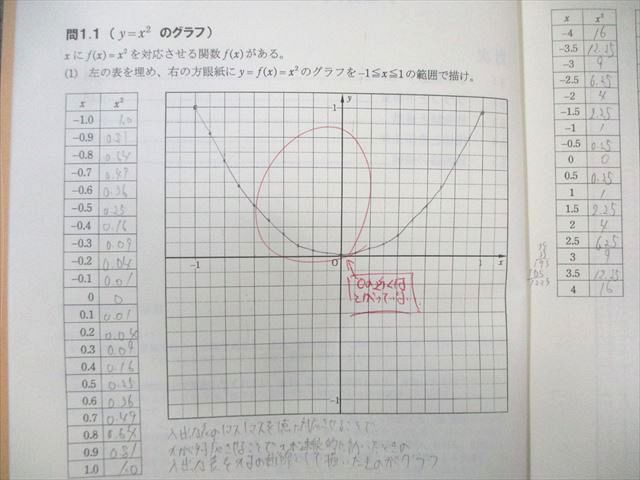 問1.1 ( y=x² のグラフ)
xに f(x)=x² を対応させる関数 f(x) がある。
(1) 左の表を埋め、右の方眼紙に y=f(x)=x² のグラフを −1≦x≦1 の範囲で描け。
x x²
−1.0 1.0
−0.9 0.81
−0.8 0.64
−0.7 0.49
−0.6 0.36
−0.5 0.25
−0.4 0.16
−0.3 0.09
−0.2 0.04
−0.1 0.01
0 0
0.1 0.01
0.2 0.04
0.3 0.09
0.4 0.16
0.5 0.25
0.6 0.36
0.7 0.49
0.8 0.64
0.9 0.81
1.0 1.0
1
y
−1
0
1
x
−1
0の近くは
とがっていない
x x²
−4 16
−3.5 12.25
−3 9
−2.5 6.25
−2 4
−1.5 2.25
−1 1
−0.5 0.25
0 0
0.5 0.25
1 1
1.5 2.25
2 4
2.5 6.25
3 9
3.5 12.25
4 16